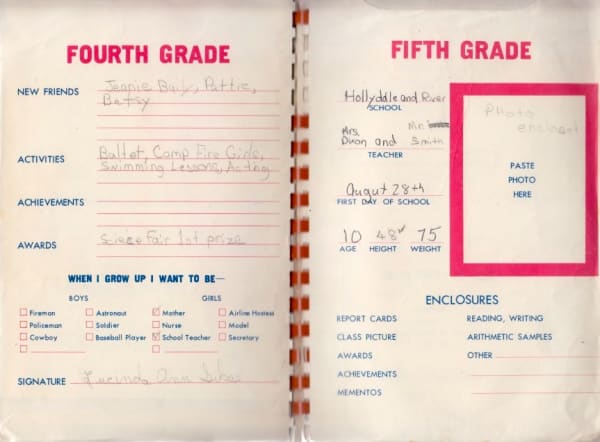 FOURTH GRADE
NEW FRIENDS Jeanie Baily, Pattie,
Betsy
ACTIVITIES Ballet, Camp Fire Girls,
Swimming Lessons, Acting
ACHIEVEMENTS
AWARDS Fair 1st prize
WHEN I GROW UP I WANT TO BE—
BOYS GIRLS
Fireman Astronaut Mother Airline Hostess
Policeman Soldier Nurse Model
Cowboy Baseball Player School Teacher Secretary
SIGNATURE Lucinda Ann
FIFTH GRADE
Hollydale and River
SCHOOL
Mrs. Mr.
Dixon and Smith
TEACHER
Augut 28th
FIRST DAY OF SCHOOL
10 48" 75
AGE HEIGHT WEIGHT
Photo
PASTE
PHOTO
HERE
ENCLOSURES
REPORT CARDS READING, WRITING
CLASS PICTURE ARITHMETIC SAMPLES
AWARDS OTHER
ACHIEVEMENTS
MEMENTOS